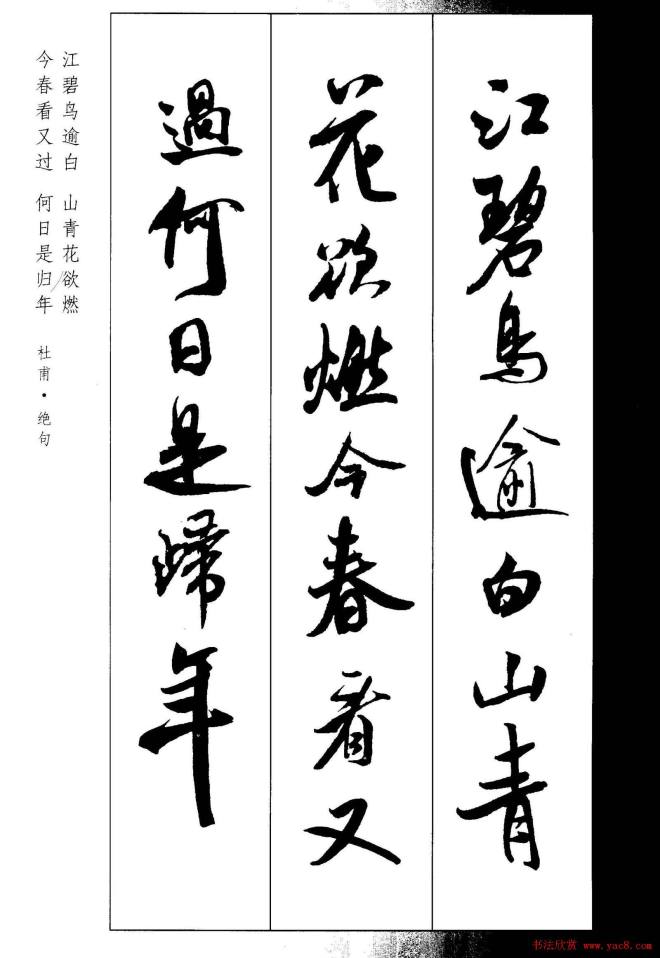 江碧鸟逾白山青
花欲燃今春看又
過何日是歸年
江碧鸟逾白 山青花欲燃
今春看又过 何日是归年 杜甫·绝句
书法欣赏 www.yac8.com